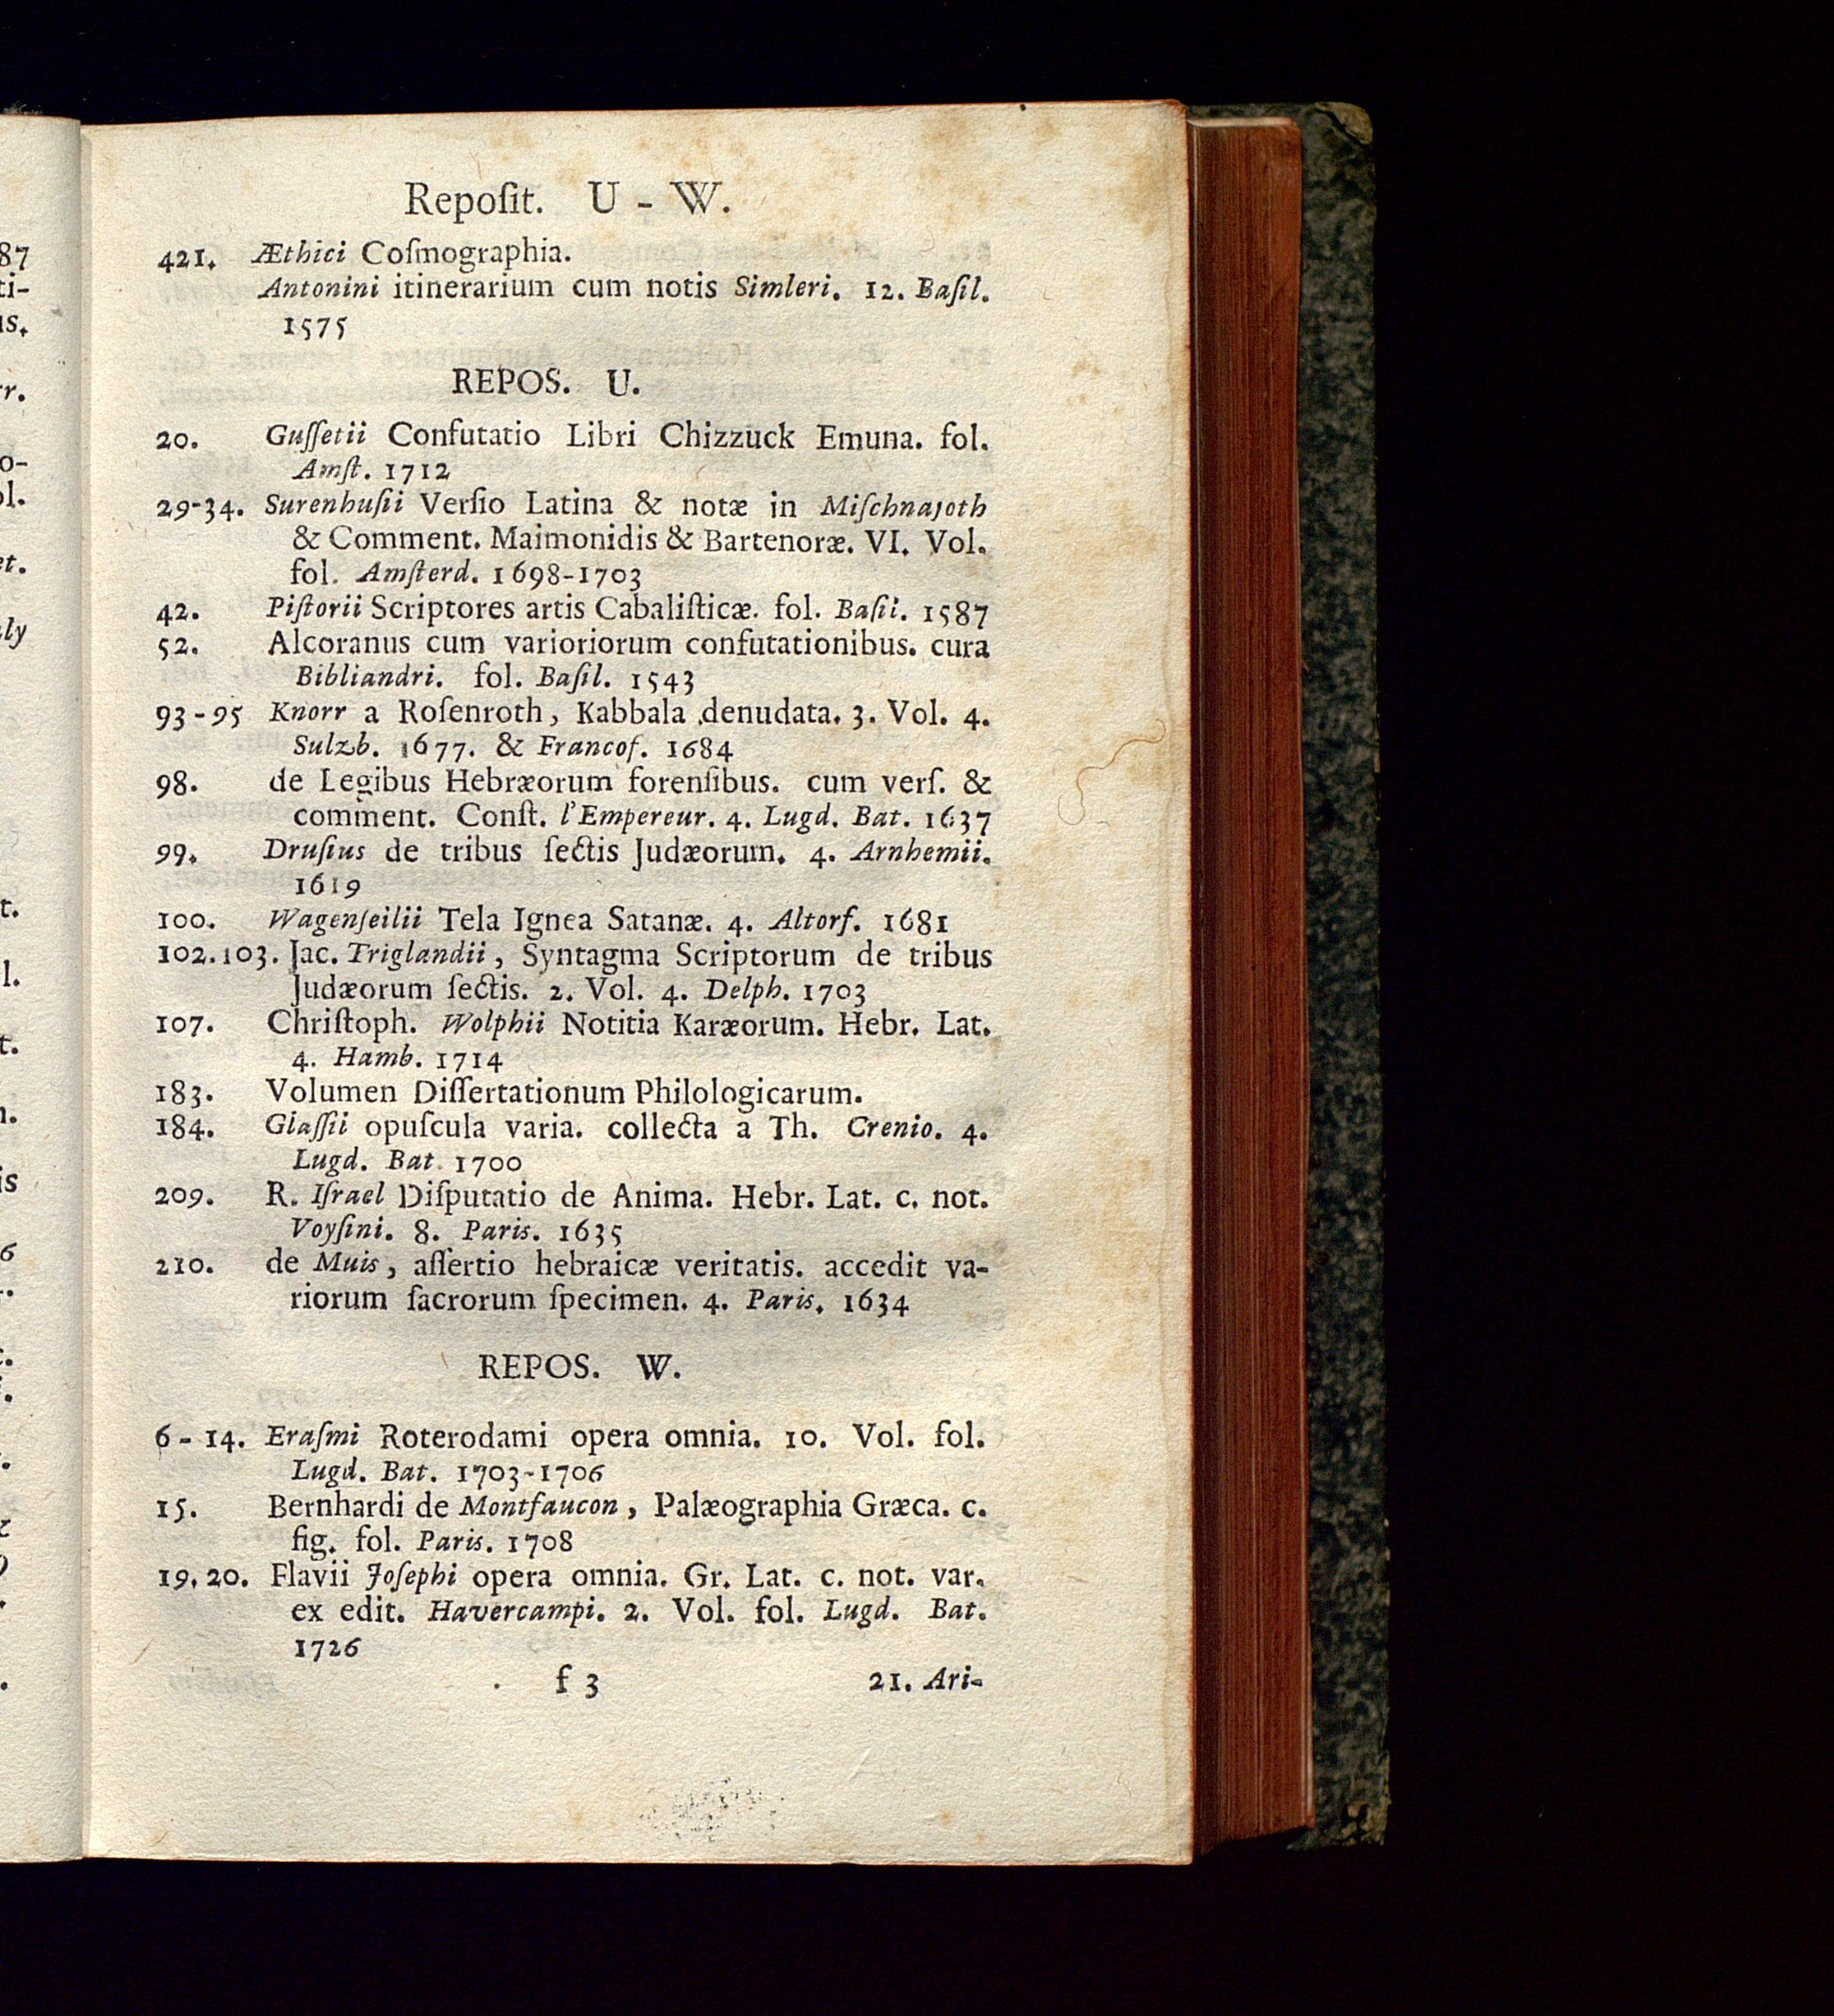 Reposit. U - W.
421. Æthici Cosmographia.
Antonini itinerarium cum notis Simleri. 12. Basil.
1575
REPOS. U.
20. Gussetii Confutatio Libri Chizzuck Emuna. fol.
Amst. 1712
29-34. Surenhusii Versio Latina & notæ in Mischnajoth
& Comment. Maimonidis & Bartenoræ. VI. Vol.
fol. Amsterd. 1698-1703
42. Pistorii Scriptores artis Cabalisticæ. fol. Basil. 1587
52. Alcoranus cum varioriorum confutationibus. cura
Bibliandri. fol. Basil. 1543
93-95 Knorr a Rosenroth, Kabbala denudata. 3. Vol. 4.
Sulzb. 1677. & Francof. 1684
98. de Legibus Hebræorum forensibus. cum vers. &
comment. Const. l'Empereur. 4. Lugd. Bat. 1637
99. Drusius de tribus sectis Judæorum. 4. Arnhemii.
1619
100. Wagenseilii Tela Ignea Satanæ. 4. Altorf. 1681
102.103. Jac. Triglandii, Syntagma Scriptorum de tribus
Judæorum sectis. 2. Vol. 4. Delph. 1703
107. Christoph. Wolphii Notitia Karæorum. Hebr. Lat.
4. Hamb. 1714
183. Volumen Dissertationum Philologicarum.
184. Glassii opuscula varia. collecta a Th. Crenio. 4.
Lugd. Bat. 1700
209. R. Israel Disputatio de Anima. Hebr. Lat. c. not.
Voysini. 8. Paris. 1635
210. de Muis, assertio hebraicæ veritatis. accedit va-
riorum sacrorum specimen. 4. Paris. 1634
REPOS. W.
6-14. Erasmi Roterodami opera omnia. 10. Vol. fol.
Lugd. Bat. 1703-1706
15. Bernhardi de Montfaucon, Palæographia Græca. c.
fig. fol. Paris. 1708
19.20. Flavii Josephi opera omnia. Gr. Lat. c. not. var.
ex edit. Havercampi. 2. Vol. fol. Lugd. Bat.
1726
f 3 21. Ari-